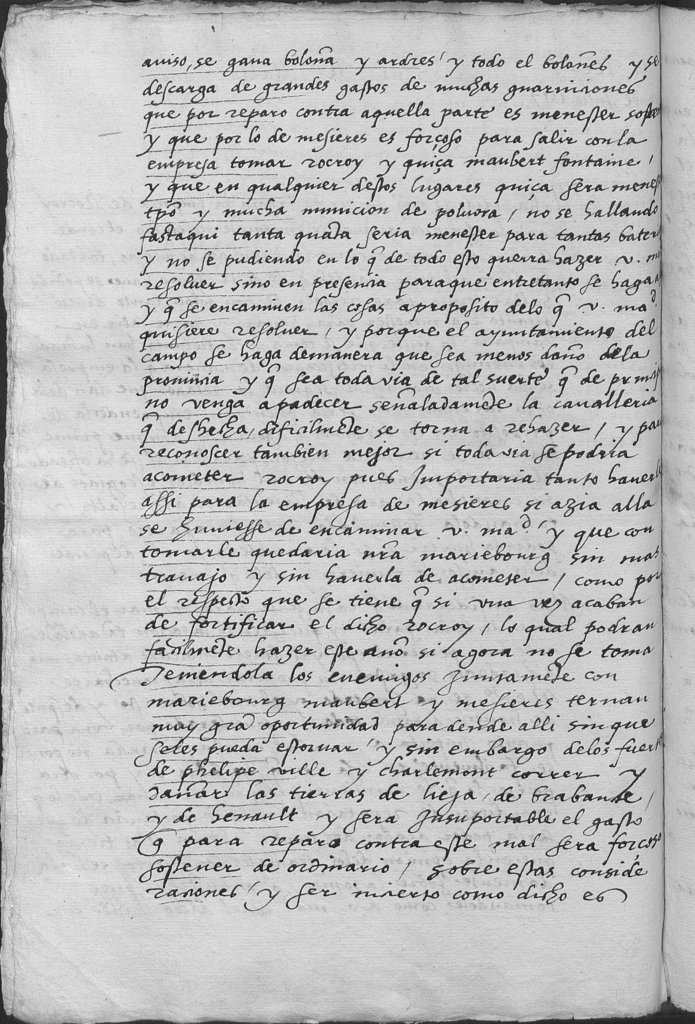 aviso, se gana boloña y ardres / y todo el boloñes y se
descarga de grandes gastos de muchas guarniciones
que por reparo contra aquella parte es menester sostener
y que por lo de mesieres es forçoso para salir con la
empresa tomar rocroy y quiça maubert fontaine /
y que en qualquier destos lugares quiça sera menes
tpo y mucha municion de polvora / no se hallando
fasta qui tanta quāta seria menester para tantas bater
y no se pudiendo en lo q̃ de todo esto querra hazer v. ma
resolver sino en presencia para que entretanto se haga
y q̃ se encaminen las cosas a proposito de lo q̃ v. mad
quisiere resolver / y porque el ayuntamiento del
campo se haga de manera que sea menos daño de la
provincia y q̃ sea toda via de tal suerte q̃ de
no venga a padecer señaladamēte la cavalleria
q̃ deshecha, dificilmēte se torna a rehazer / y para
reconoscer tambien mejor si toda via se podria
acometer rocroy pues Importaria tanto haverla
assi para la empresa de mesieres si azia alla
se huviesse de encaminar v. mad / y que con
tomarle quedaria nrã mariebourg sin mas
travajo y sin haverla de acometer / como por
el respecto que se tiene q̃ si una vez acaban
de fortificar el dicho rocroy / lo qual podran
facilmēte hazer este año si agora no se toma
Teniendola los enemigos Juntamēte con
mariebourg maubert y mesieres ternan
muy grā oportunidad para dende alli sin que
seles pueda estorvar y sin embargo de los fuertes
de phelipe ville y charlemont correr y
dañar las tierras de lieja, de brabante,
y de henault y sera Insuportable el gasto
q̃ para reparo contra este mal sera forcoso
sostener de ordinario / sobre estas conside
raciones / y ser incierto como dicho es